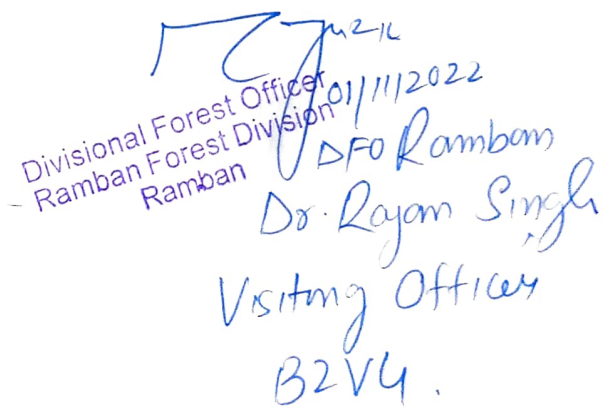 01/11/2022
Divisional Forest Officer
Ramban Forest Division
Ramban
DFO Ramban
Dr. Rajan Singh
Visiting Officer
B2V4.